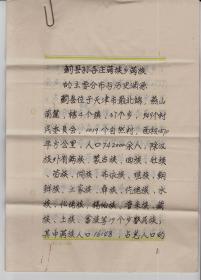 蓟县孙各庄满族乡满族
的主要分布与历史渊源
蓟县位于天津市最北端，燕山
南麓，辖4个镇，37个乡，949个村
民委员会，1019个自然村，面积1470
平方公里，人口742000余人，除汉
族外有满族、蒙古族、回族、壮族
、苗族、侗族、布依族、彝族、朝鲜
族、土家族、彝族、仡佬族、水
族、
族、土族、畲族等17个少数民族，
其中满族人口16168，占总人口的